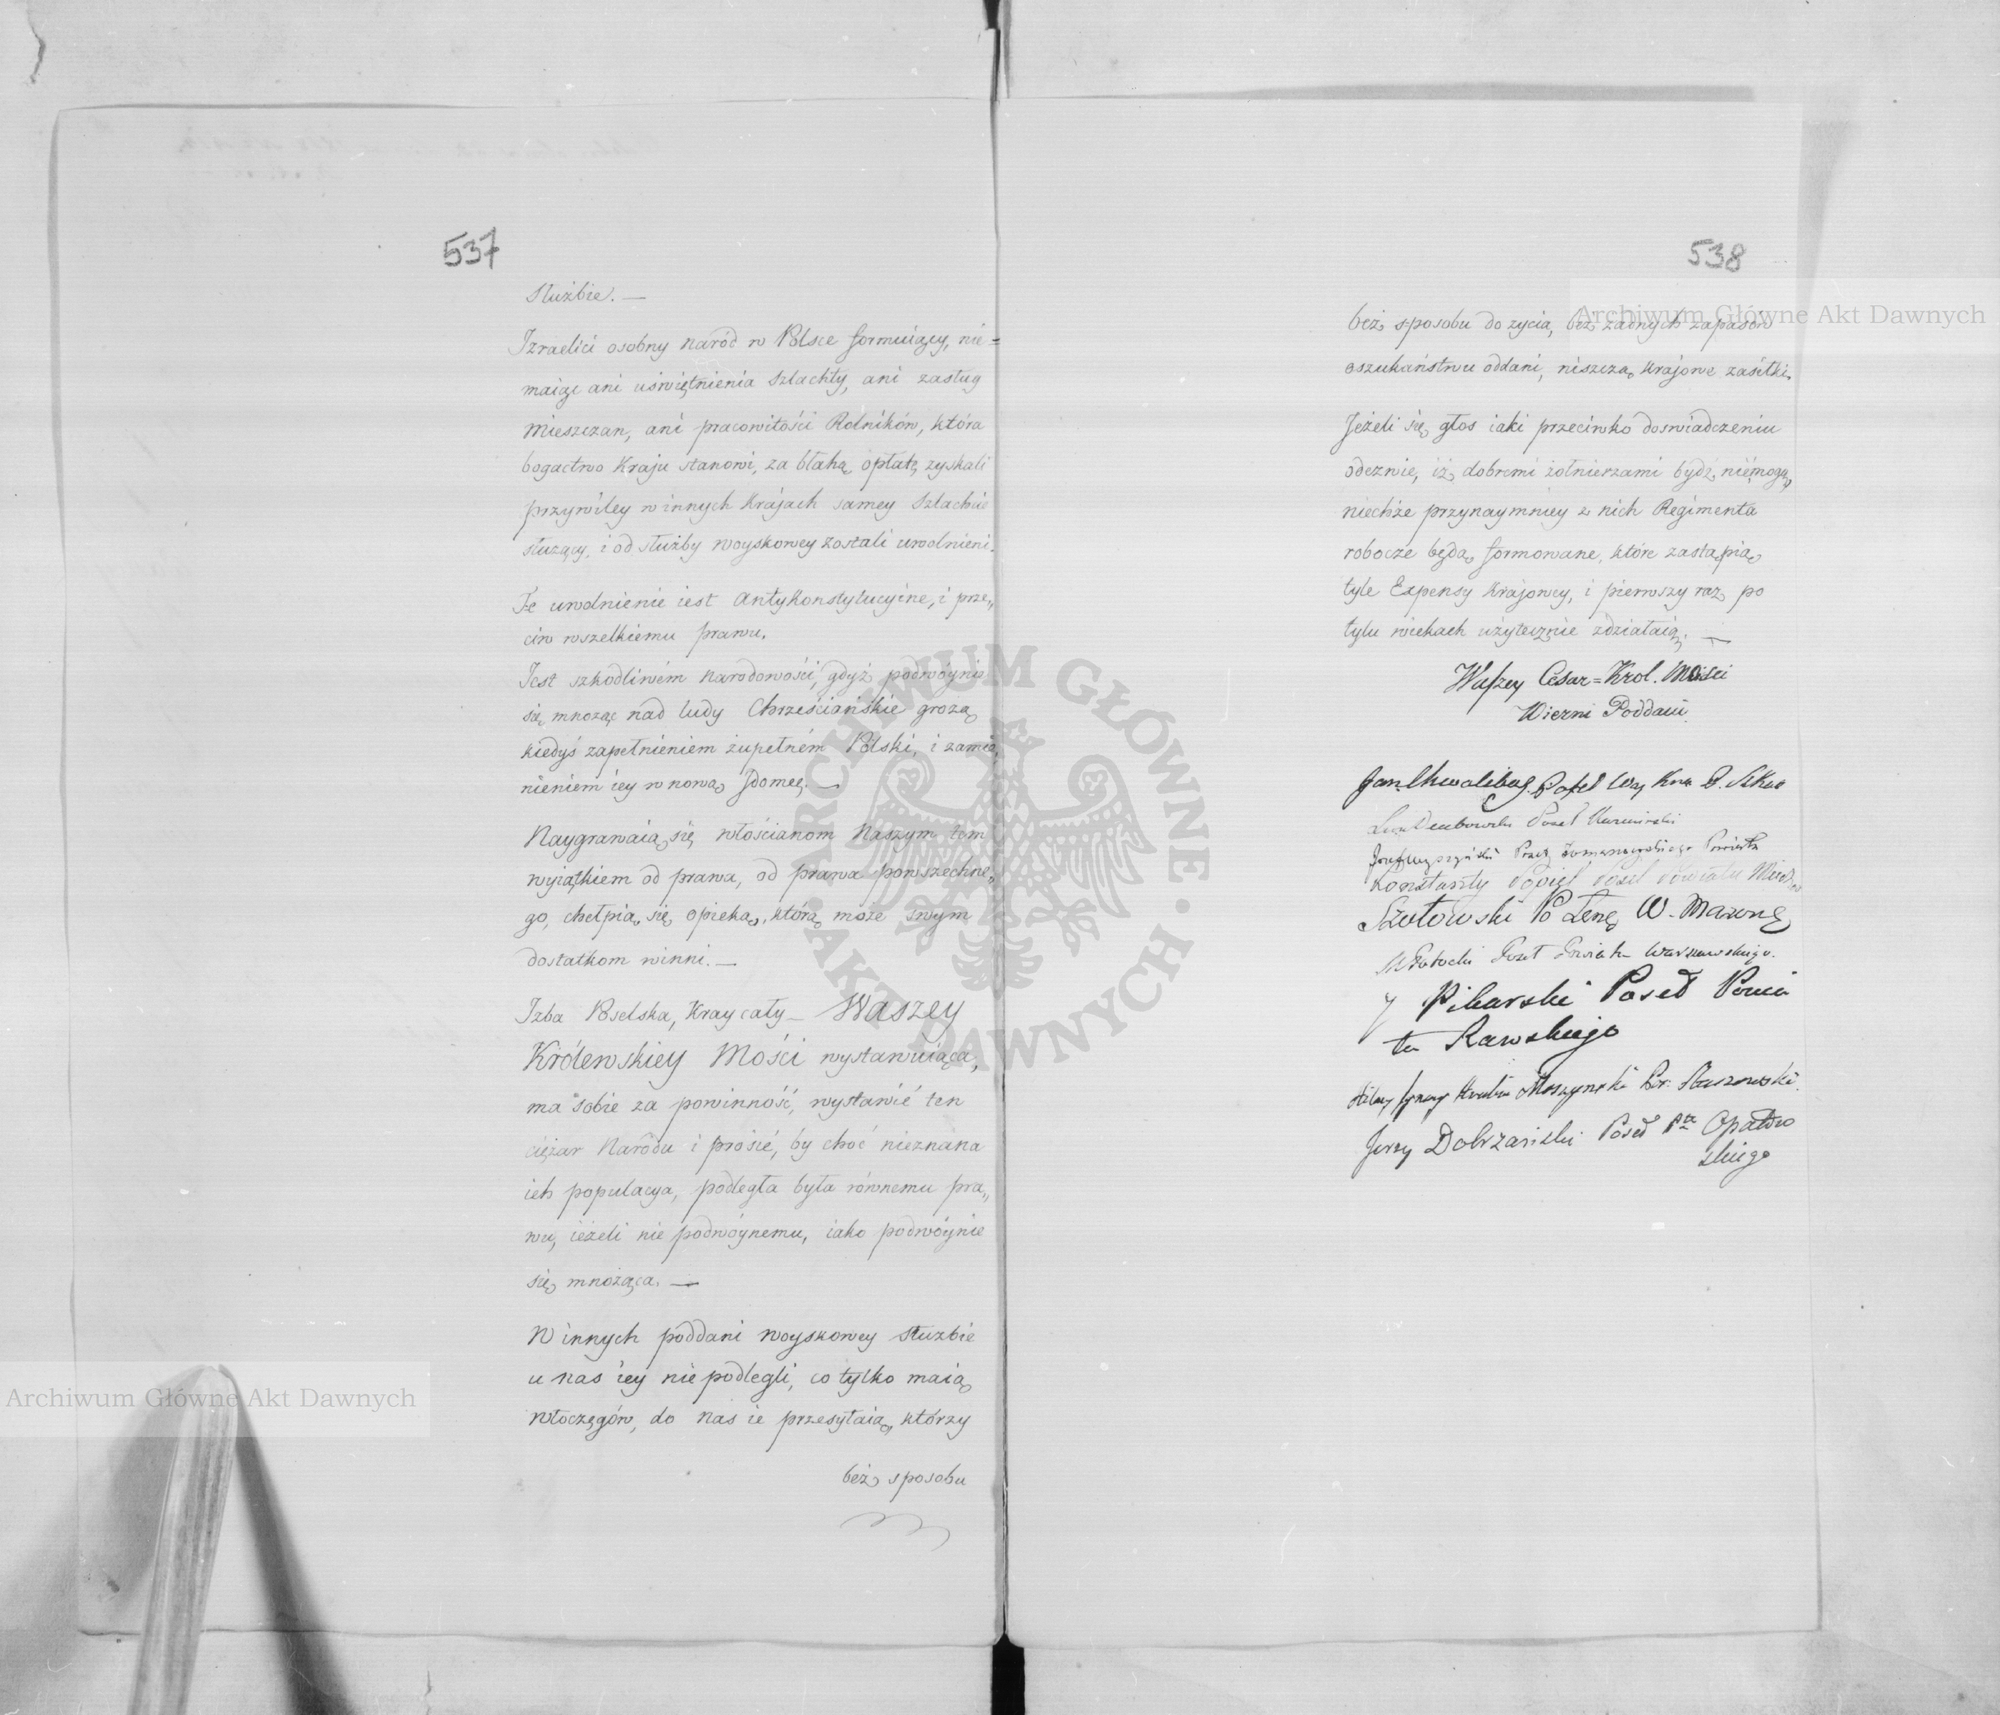 537
Służbie. —
Izraelici osobny naród w Polsce formuiący, nie=
maiąc ani uświętnienia Szlachty, ani zasług
Mieszczan, ani pracowitości Rolników, która
bogactwo Kraju stanowi, za błahą opłatę zyskali
przywiley w innych Krajach samey Szlachcie
służący, i od służby woyskowey zostali uwolnieni.
Te uwolnienie iest Antykonstytucyine, i prze„
ciw wszelkiemu prawu.
Jest szkodliwém Narodowości, gdyż podwóynie
się mnożąc nad ludy Chrześciańskie grożą
kiedyś zapełnieniem zupełném Polski, i zamie„
nieniem iey w nową Jdomeę. —
Naygrawaią się włościanom Naszym tem
wyiątkiem od prawa, od prawa powszechne„
go, chełpią się opieką, którą może swym
dostatkom winni. —
Izba Poselska, Kray cały — Waszey
Królewskiey Mości wystawuiąca,
ma sobie za powinność, wystawić ten
ciężar Narodu i prosić, by choć nieznana
ich populacya, podległa była równemu pra„
wu, ieżeli nie podwóynemu, iako podwóynie
się mnożąca. —
W innych poddani woyskowey służbie
u nas iey nie podlegli, co tylko maią
włóczęgów, do nas ie przesyłaią, którzy
bez sposobu
538
bez sposobu do zycia, bez żadnych zapasów
oszukaństwu oddani, niszczą Krajowe zasiłki.
Jeżeli się głos iaki przeciwko doswiadczeniu
odezwie, iż dobremi żołnierzami bydź niemogą,
niechże przynaymniey z nich Regimenta
robocze będą formowane, które zastąpią
tyle Expensy Krajowey, i pierwszy raz po
tylu wiekach użytecznie zdziałaią. —
Waszey Cesar=Krol. Mości
Wierni Poddani
Jan Chwalibog Poseł
Poseł
Poseł Powiatu
Konstanty Popiel Poseł Powiatu
Szołowski
Potocki Poseł Powiatu Warszawskiego.
J Piharski Poseł Powia
tu Rawskiego
Moszynski Staszowski
Jerzy Dobrzański Poseł Ptu Opatow
skiego
Archiwum Główne Akt Dawnych
Archiwum Główne Akt Dawnych
ARCHIWUM GŁÓWNE · AKT DAWNYCH ·